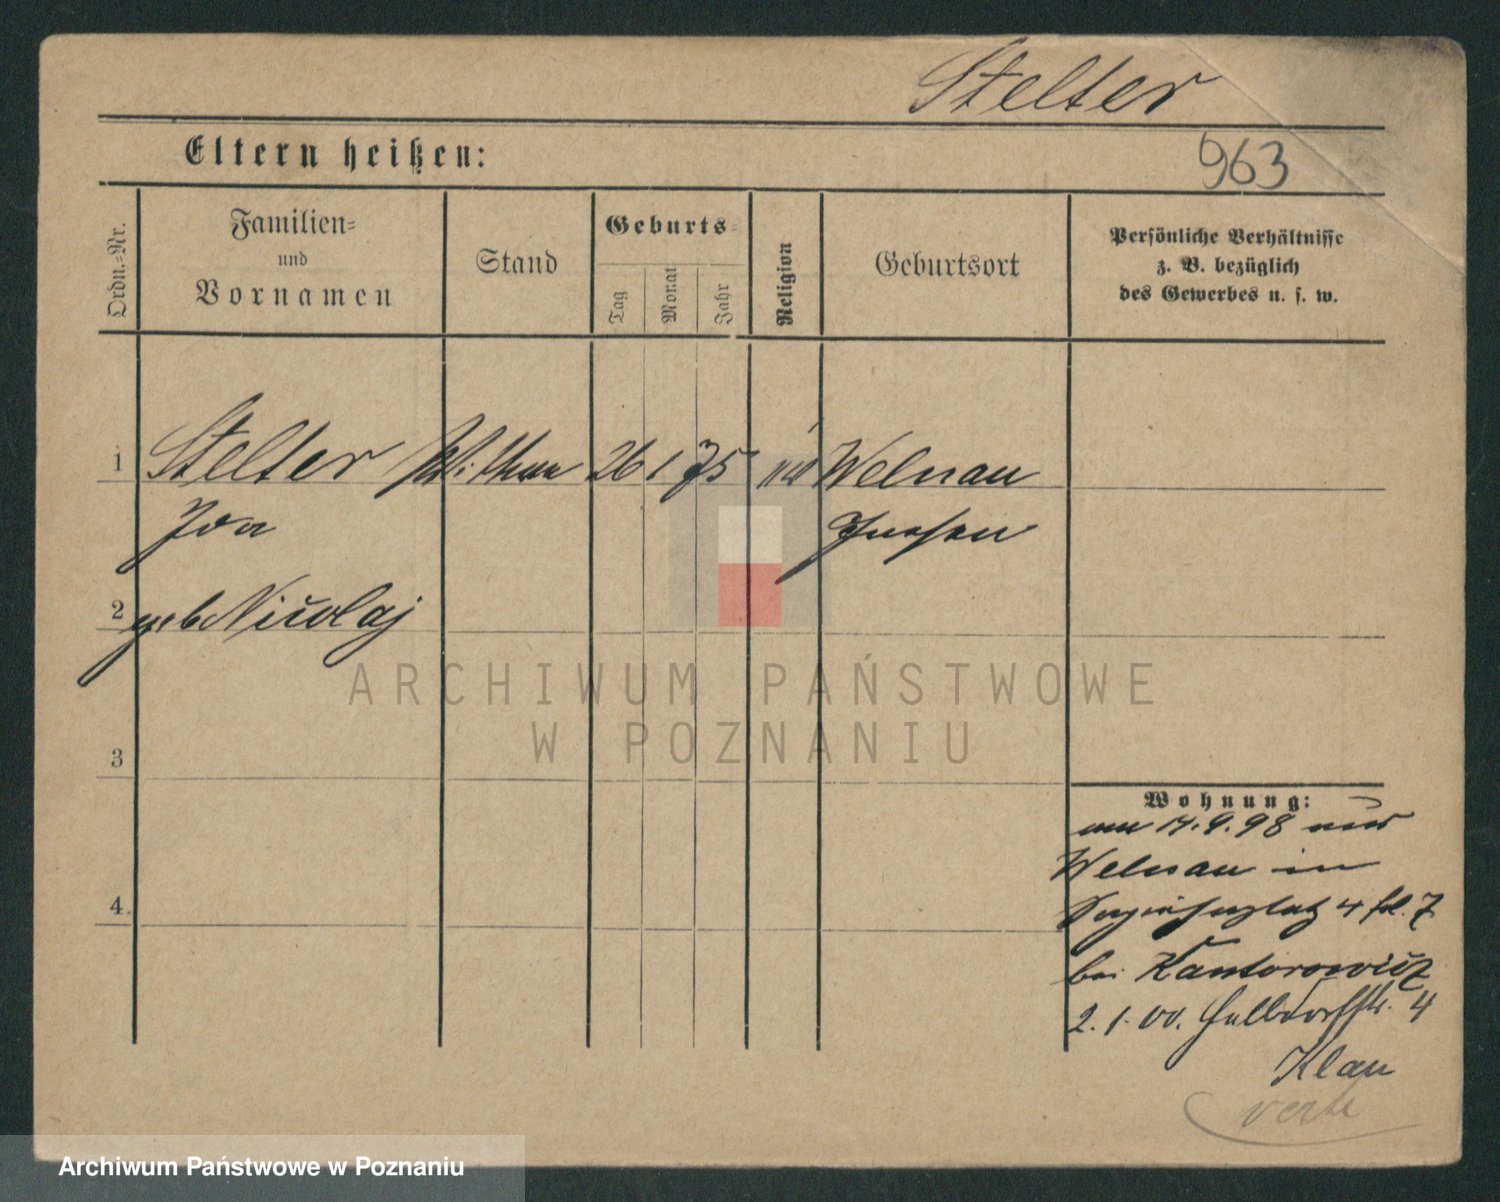 Stelter
963
Eltern heißen:
Ordn.-Nr.
Familien-
und
Vornamen
Stand
Geburts-
Tag
Monat
Jahr
Religion
Geburtsort
Persönliche Verhältnisse
z. B. bezüglich
des Gewerbes u. s. w.
1 Stelter 26 1 75 Welnau
Ida Gnesen
2 geb Nicolaj
ARCHIWUM PAŃSTWOWE
W POZNANIU
3
Wohnung:
am 14.9.98 aus
Welnau in
4.
4
bei Kantorowicz
2.1.00. 4
Klau
verte
Archiwum Państwowe w Poznaniu